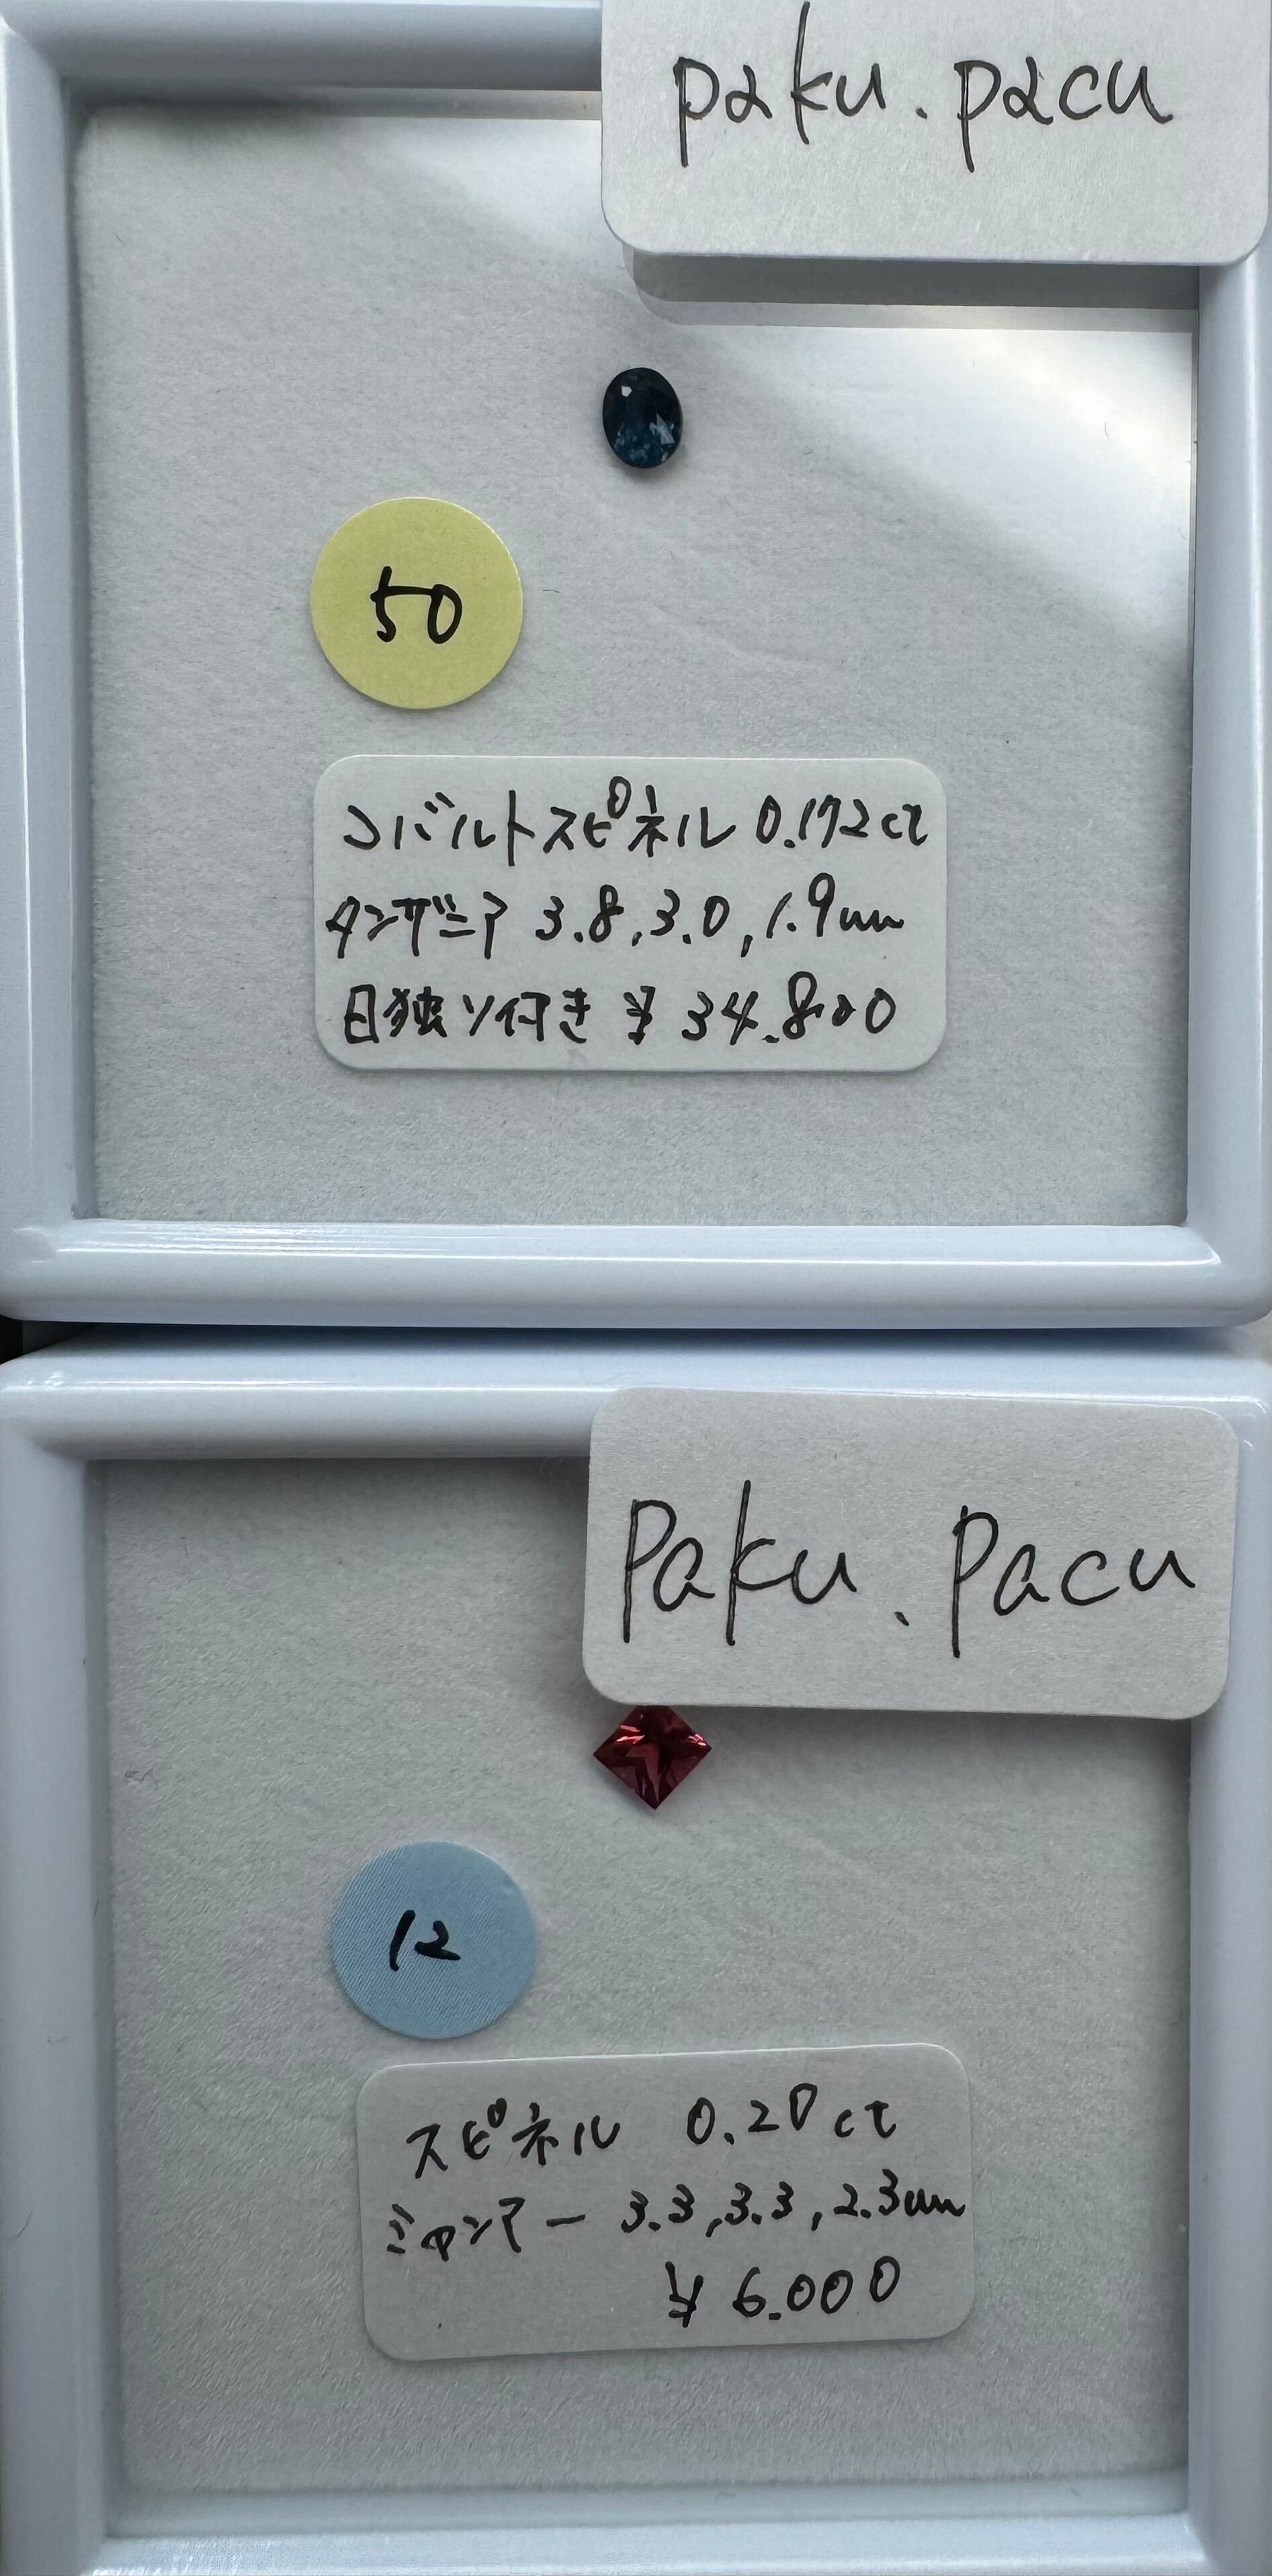 paku.pacu
50
コバルトスピネル 0.172ct
タンザニア 3.8,3.0,1.9mm
日独ソ付き ¥34.800
Paku.Pacu
12
スピネル 0.20ct
ミャンマー 3.3,3.3,2.3mm
¥6.000